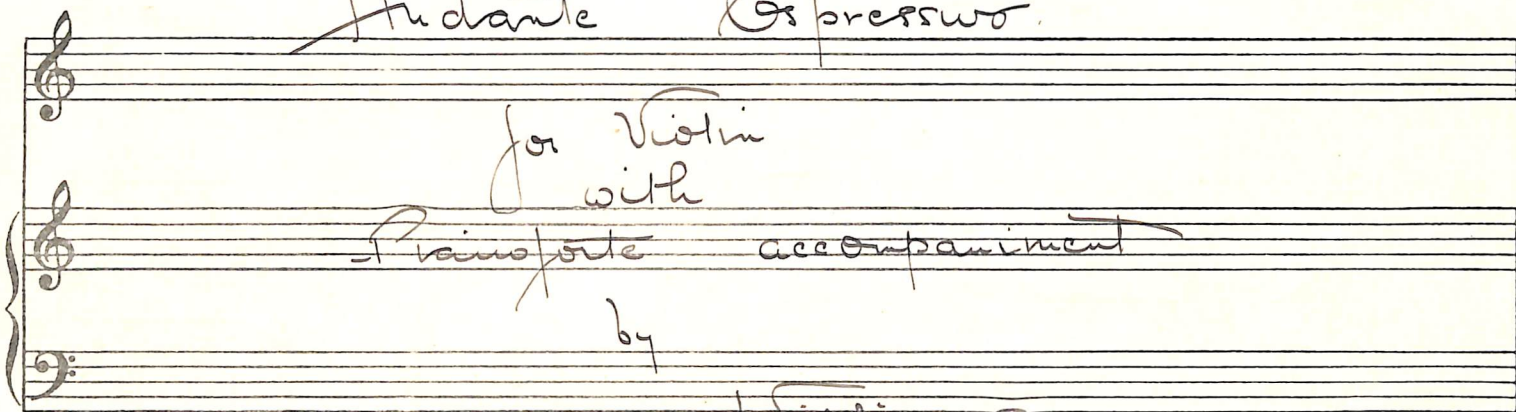 Andante Espressivo.
for Violin
with
Pianoforte accompaniment
by